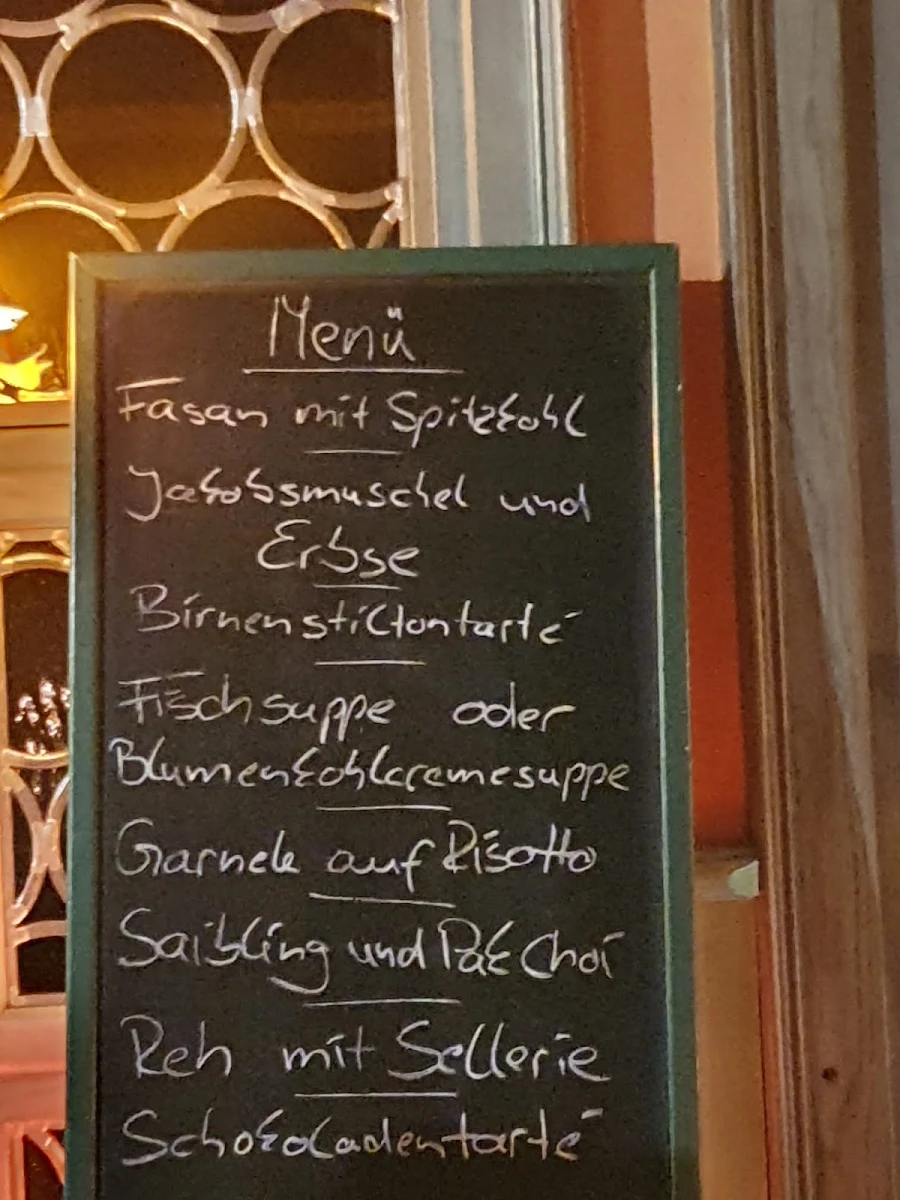 Menü
Fasan mit Spitzkohl
Jakobsmuschel und
Erbse
Birnenstiltontarté
Fischsuppe oder
Blumenkohlcremesuppe
Garnele auf Risotto
Saibling und Pak Choi
Reh mit Sellerie
Schokoladentarté